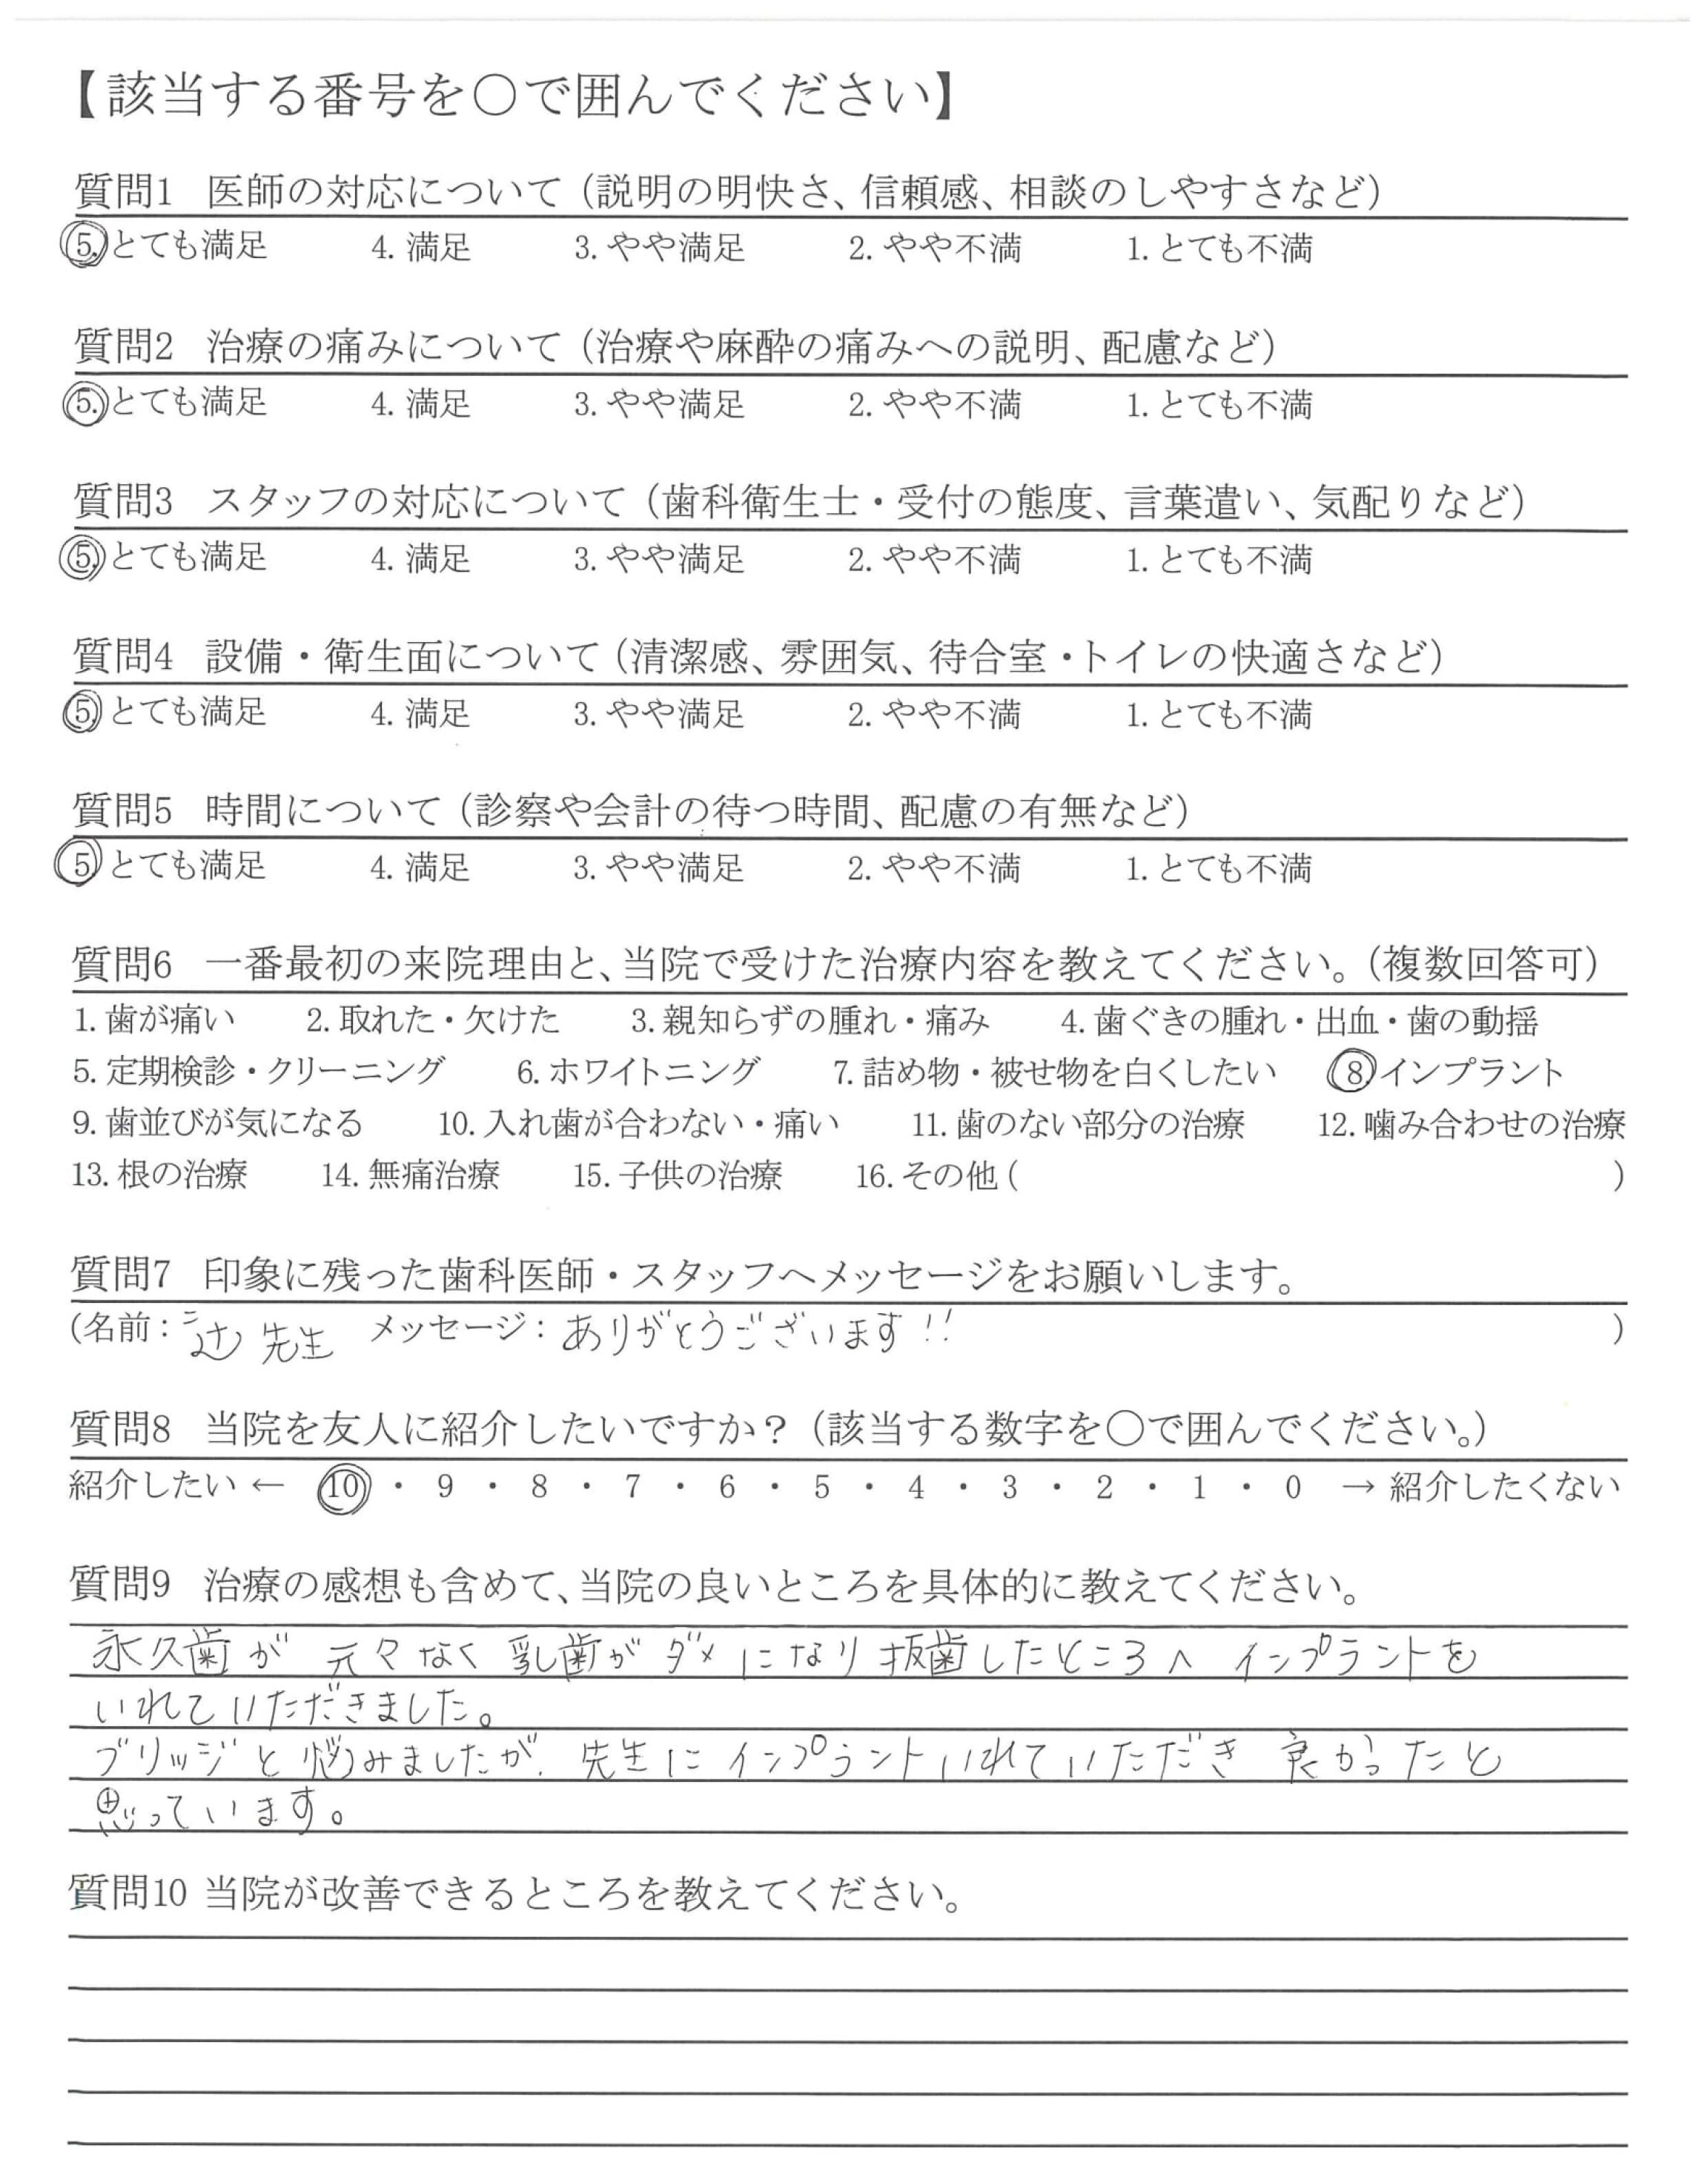 【該当する番号を〇で囲んでください】
質問1 医師の対応について（説明の明快さ、信頼感、相談のしやすさなど）
5. とても満足 4. 満足 3. やや満足 2. やや不満 1. とても不満
質問2 治療の痛みについて（治療や麻酔の痛みへの説明、配慮など）
5. とても満足 4. 満足 3. やや満足 2. やや不満 1. とても不満
質問3 スタッフの対応について（歯科衛生士・受付の態度、言葉遣い、気配りなど）
5. とても満足 4. 満足 3. やや満足 2. やや不満 1. とても不満
質問4 設備・衛生面について（清潔感、雰囲気、待合室・トイレの快適さなど）
5. とても満足 4. 満足 3. やや満足 2. やや不満 1. とても不満
質問5 時間について（診察や会計の待つ時間、配慮の有無など）
5 とても満足 4. 満足 3. やや満足 2. やや不満 1. とても不満
質問6 一番最初の来院理由と、当院で受けた治療内容を教えてください。（複数回答可）
1. 歯が痛い 2. 取れた・欠けた 3. 親知らずの腫れ・痛み 4. 歯ぐきの腫れ・出血・歯の動揺
5. 定期検診・クリーニング 6. ホワイトニング 7. 詰め物・被せ物を白くしたい 8. インプラント
9. 歯並びが気になる 10. 入れ歯が合わない・痛い 11. 歯のない部分の治療 12. 噛み合わせの治療
13. 根の治療 14. 無痛治療 15. 子供の治療 16. その他 ( )
質問7 印象に残った歯科医師・スタッフへメッセージをお願いします。
(名前：辻 先生 メッセージ：ありがとうございます!! )
質問8 当院を友人に紹介したいですか？（該当する数字を〇で囲んでください。）
紹介したい ← 10 ・ 9 ・ 8 ・ 7 ・ 6 ・ 5 ・ 4 ・ 3 ・ 2 ・ 1 ・ 0 → 紹介したくない
質問9 治療の感想も含めて、当院の良いところを具体的に教えてください。
永久歯が 元々なく 乳歯がダメになり 抜歯したところへ インプラントを
いれていただきました。
ブリッジと悩みましたが、先生にインプラントいれていただき 良かったと
思っています。
質問10 当院が改善できるところを教えてください。